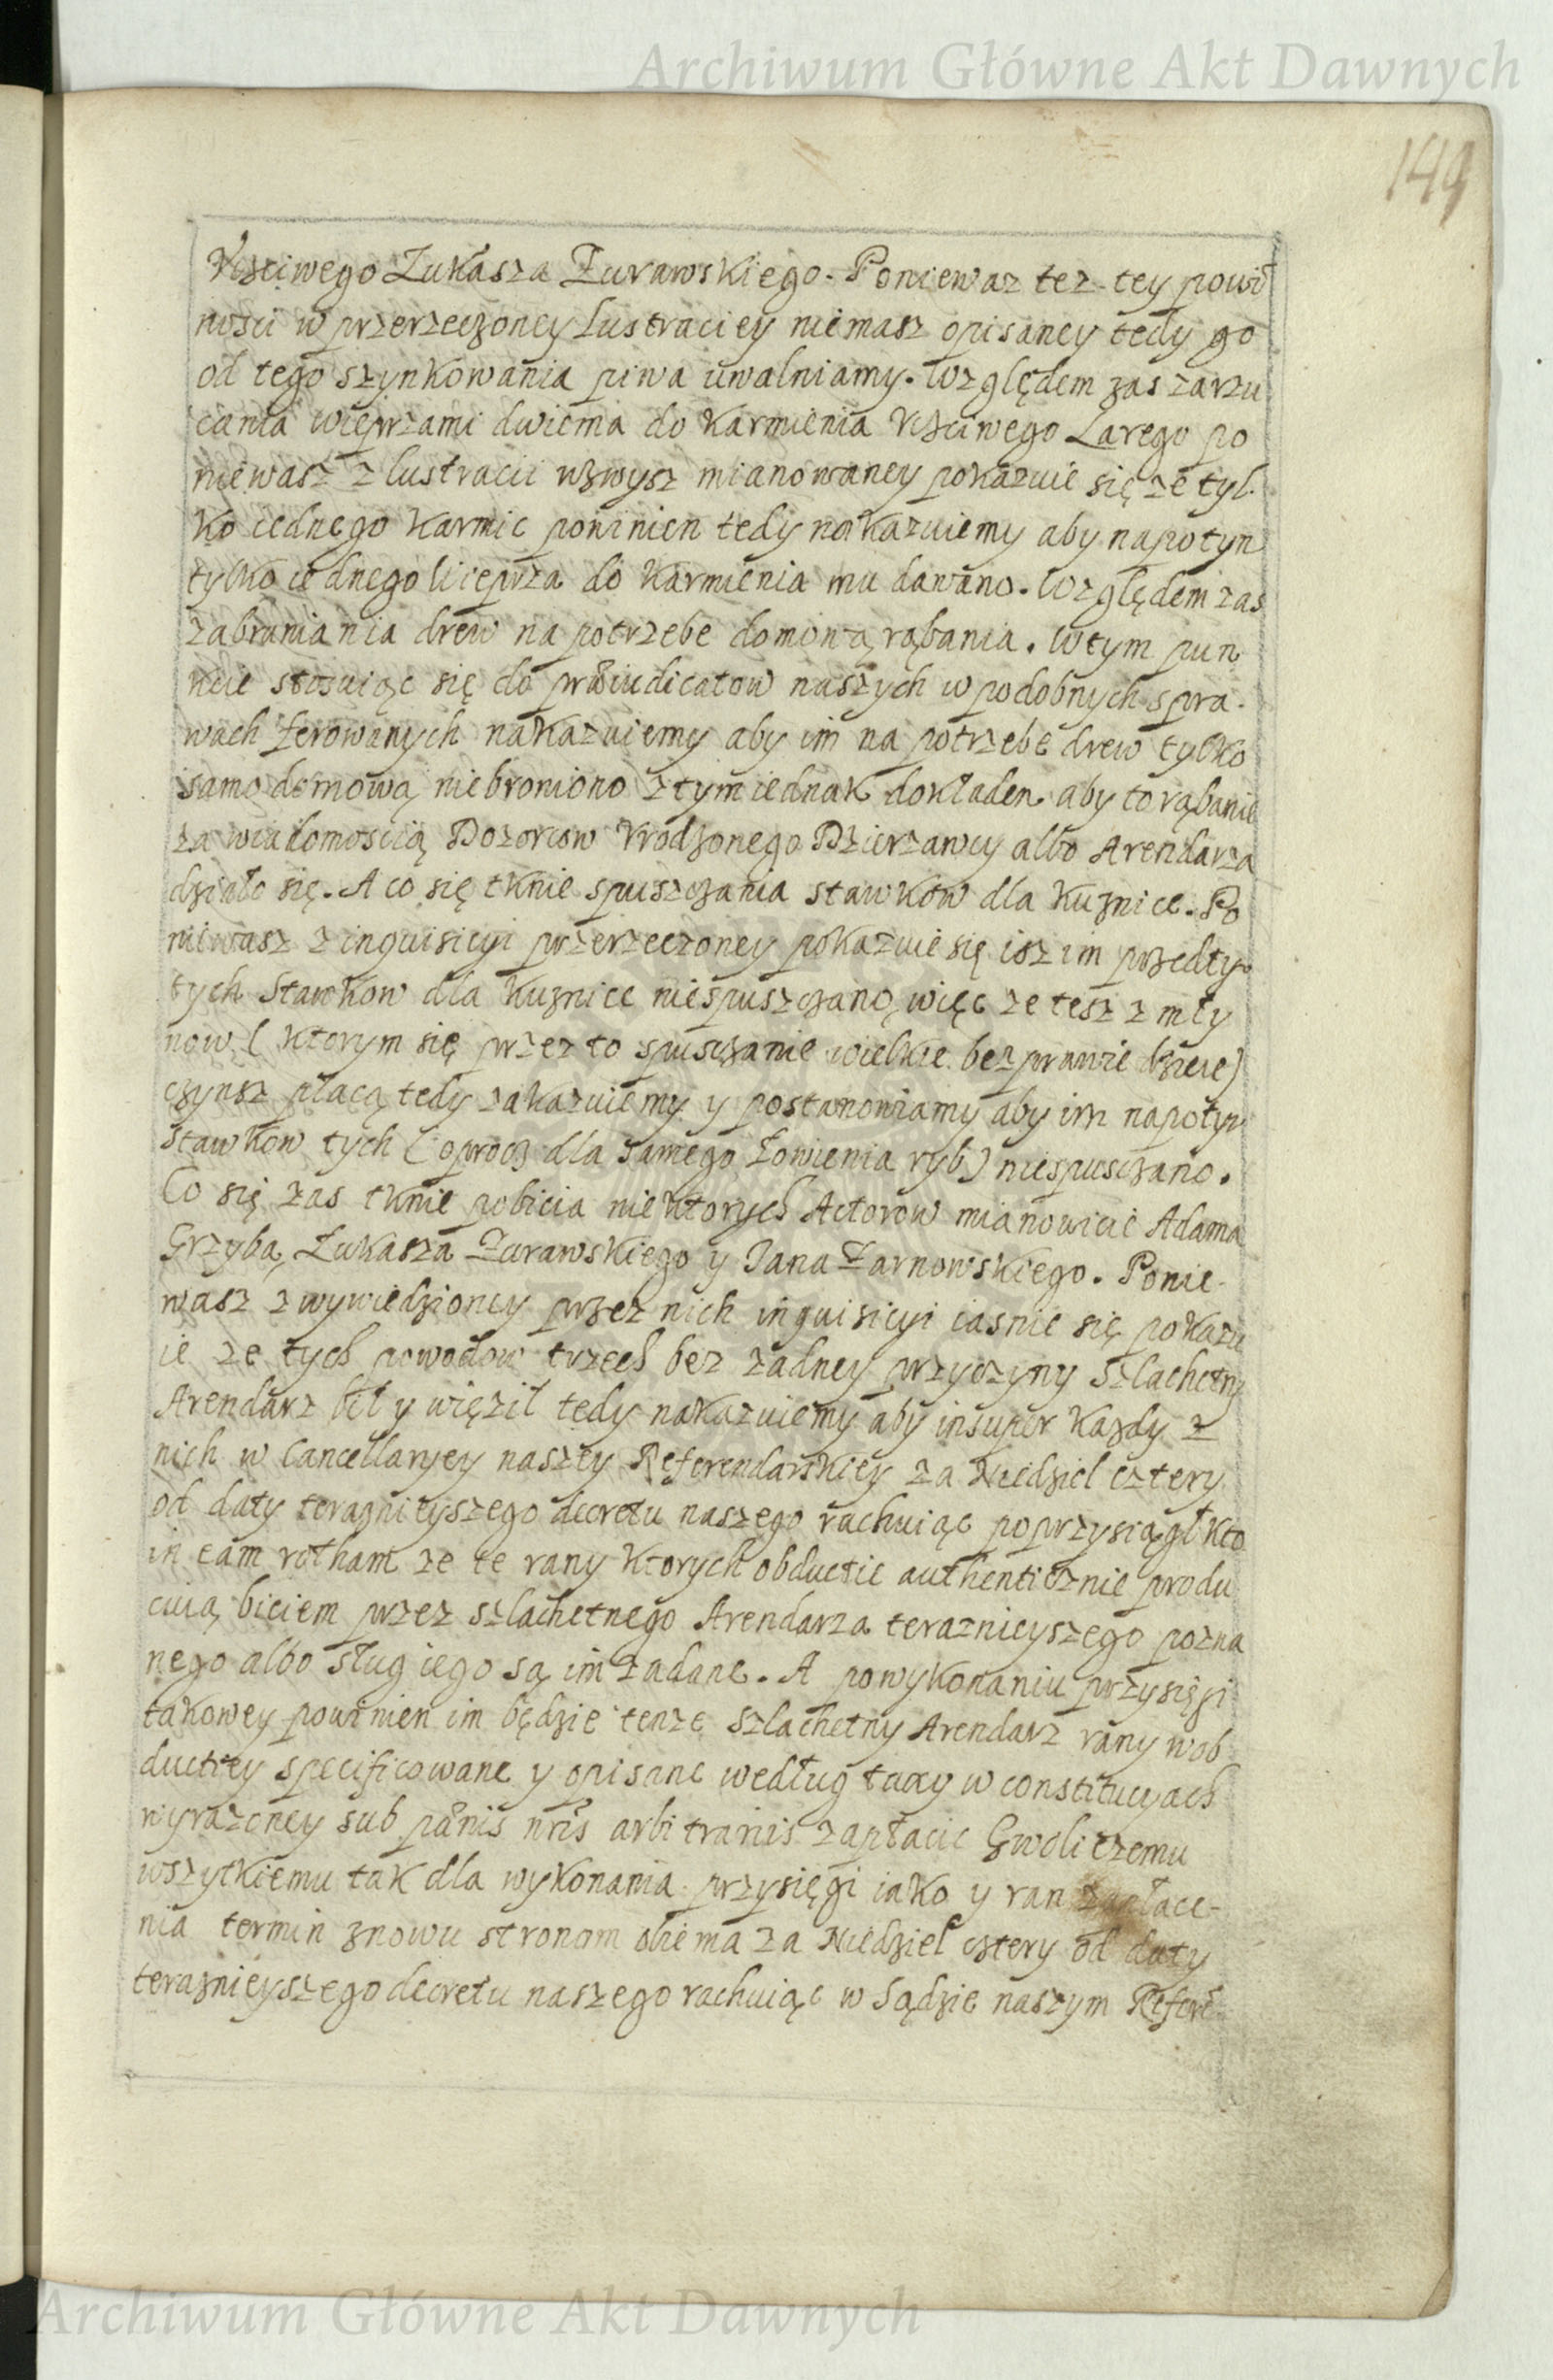 Archiwum Główne Akt Dawnych
149
Vczciwego Łukasza Żurawskiego. Poniewaz tez tey powiñ
nosci w przerzeczoney Lustraciey niemasz opisaney tedy go
od tego szynkowania piwa uwalniamy. Względem zas zarzu
cania wieprzami dwiema do karmienia Vczciwego Łarego po
niewasz z lustracii wzwysz mianowaney pokazuie się ze tyl
ko iednego karmic powinien tedy nakazuiemy aby napotym
tylko iednego Wieprza do karmienia mu dawano. Względem zas
zabraniania drew na potrzebe domową rąbania. W tym pun
kcie stosuiąc się do præiudicatow naszych w podobnych spra-
wach ferowanych nakazuiemy aby im na potrzebe drew tylko
samo domową niebroniono z tym iednak dokładem aby to rąbanie
za wiadomoscią Dozorcow Vrodzonego Dzierzawcy albo Arendarza
działo się. A co się tknie spuszczania stawkow dla kuznice. Po
niewasz z inquisicyi przerzeczoney pokazuie się isz im przedty
tych Stawkow dla kuznice niespuszczano, więc ze tesz z mły
now (ktorym się przez to spusczanie wielkie bezprawie dzieie)
czynsz płacą tedy zakazuiemy y postanowiamy aby im napotym
stawkow tych (oprocz dla samego łowienia ryb) niespusczano.
Co się zas tknie pobicia niektorych Actorow mianowicie Adama
Grzyba, Łukasza Żurawskiego y Jana Żarnowskiego. Ponie-
wasz z wywiedzioney przez nich inquisicyi iasnie się pokazu
ie ze tych powodow trzech bez zadney przyczyny Szlachetny
Arendarz bił y więził tedy nakazuiemy aby insuper kazdy z
nich w Cancellaryey naszey Referendarskiey za Niedziel cztery
od daty teraznieyszego decretu naszego rachuiąc poprzysiągł kto
in eam rotham ze te rany ktorych obductie authenticznie produ
cuią biciem przez szlachetnego Arendarza teraznieyszego pozna
nego albo sług iego są im zadane. A po wykonaniu przysięgi
takowey powinien im będzie tenze Szlachetny Arendarz rany w ob
ductiey specificowane y opisane według taxy w constitucyach
wyrazoney sub pænis nr̃is arbitrariis zapłacic Gwoli czemu
wszytkiemu tak dla wykonania przysięgi iako y ran zapłace-
nia termin znowu stronom obiema za Niedziel cztery od daty
teraznieyszego decretu naszego rachuiąc w Sądzie naszym Referẽ
Archiwum Główne Akt Dawnych